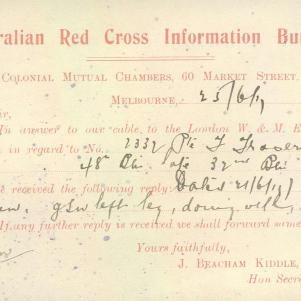 ralian Red Cross Information Bu
Colonial Mutual Chambers, 60 Market Street,
Melbourne, 25/6/17
ir,
In answer to our cable, to the London W. & M. E
in regard to No. 2332 Pte J Fraser
48th Btn. 32nd Btn
received the following reply: Dated 21/6/17
gsw left leg, doing well,
If any further reply is received we shall forward same
Yours faithfully,
J. Beacham Kiddle,
Hon Secre